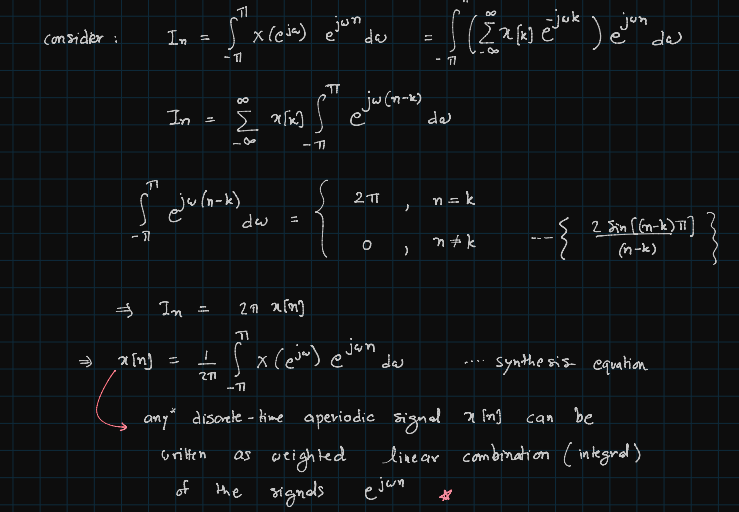 consider : Iₙ = ∫_{-π}^{π} X(e^{jω}) e^{jωn} dω = ∫_{-π}^{π} (∑_{-∞}^{∞} x[k] e^{-jωk}) e^{jωn} dω
Iₙ = ∑_{-∞}^{∞} x[k] ∫_{-π}^{π} e^{jω(n-k)} dω
∫_{-π}^{π} e^{jω(n-k)} dω = { 2π , n = k
0 , n ≠ k --- { 2 sin[(n-k)π] / (n-k) }
⇒ Iₙ = 2π x[n]
⇒ x[n] = 1/2π ∫_{-π}^{π} X(e^{jω}) e^{jωn} dω .... synthesis equation
any* discrete-time aperiodic signal x[n] can be
written as weighted linear combination (integral)
of the signals e^{jωn} ☆